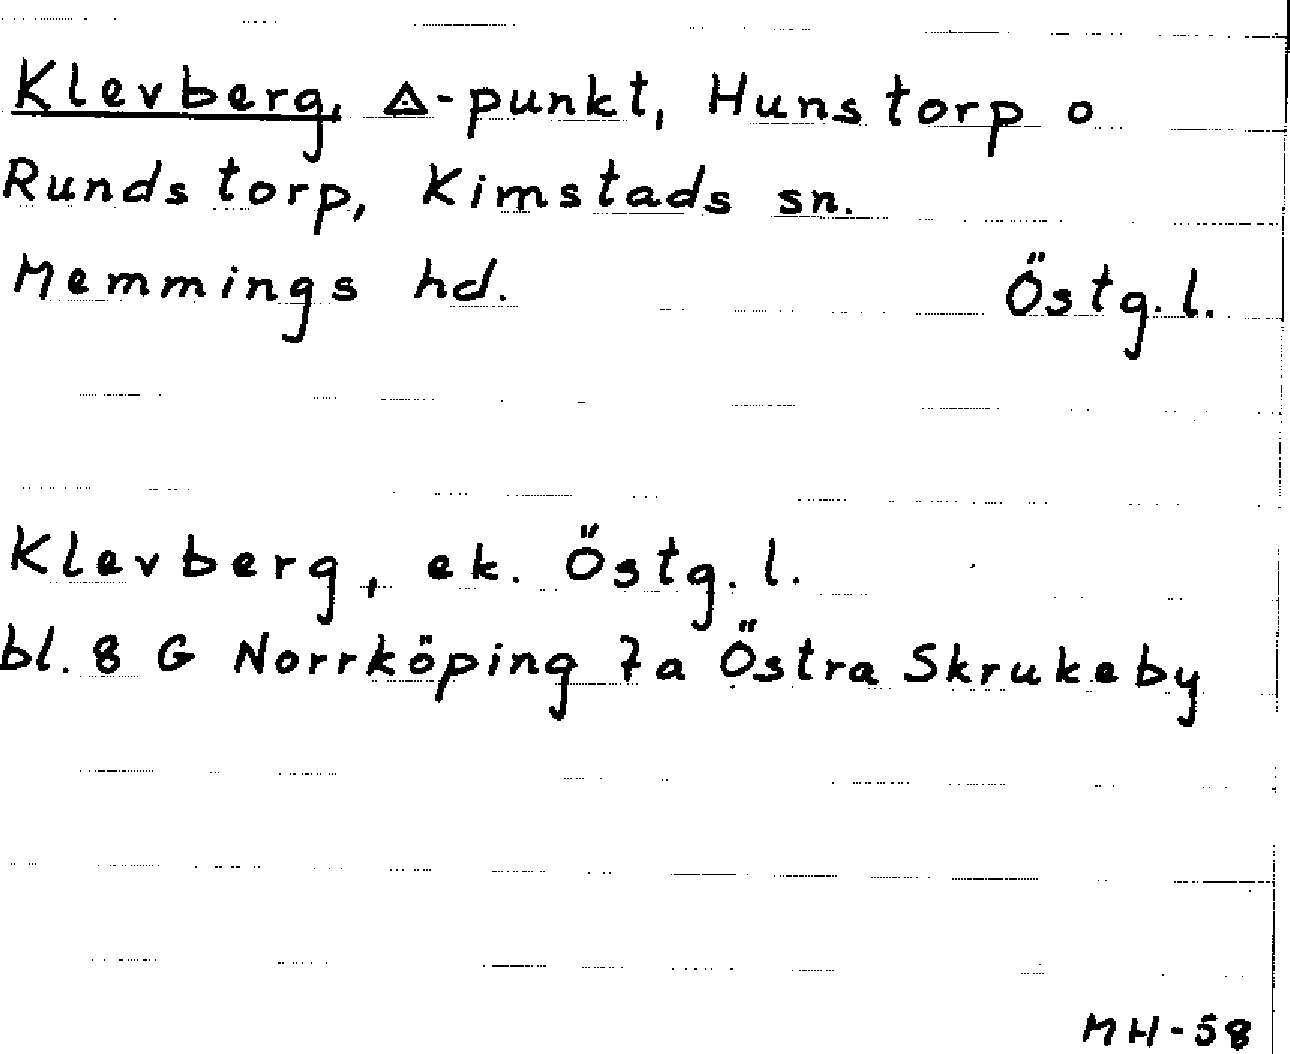 Klevberg, △-punkt, Hunstorp o
Rundstorp, Kimstads sn.
Memmings hd. Östg. l.
Klevberg, ek. Östg. l.
bl. 8 G Norrköping 7a Östra Skrukeby
MH-58